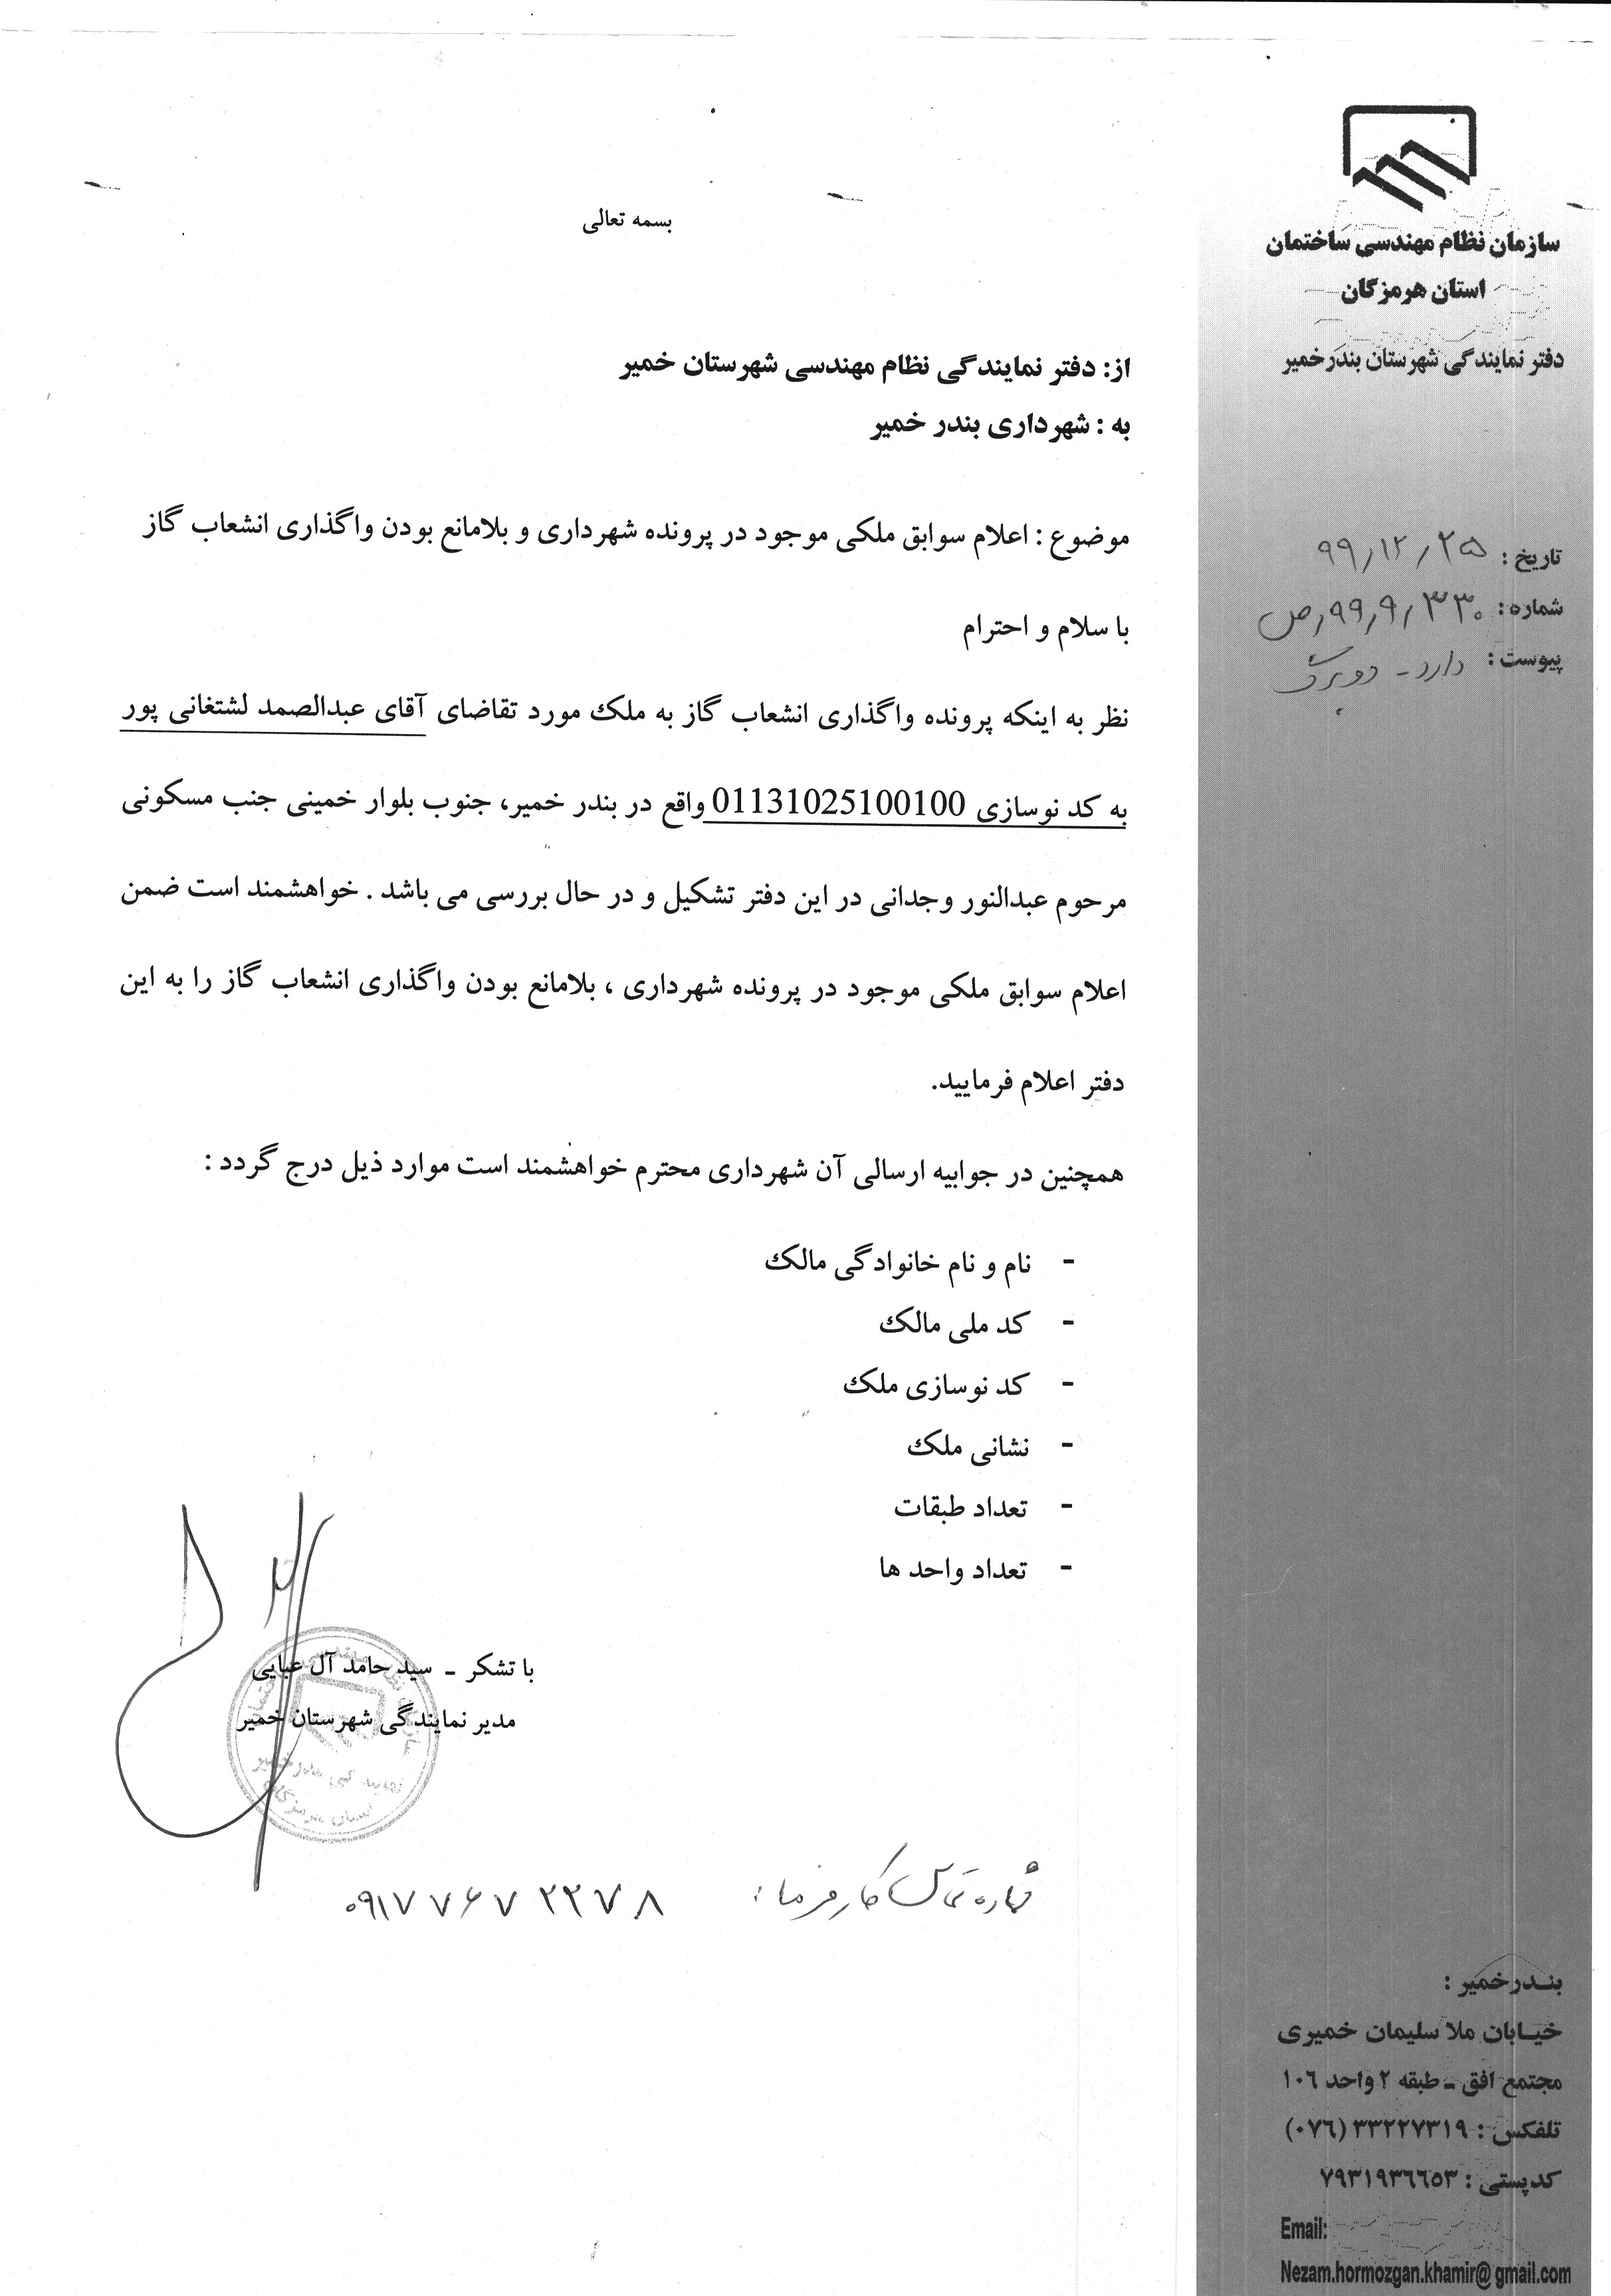 سازمان نظام مهندسی ساختمان
استان هرمزگان
دفتر نمایندگی شهرستان بندرخمیر
تاریخ : ۹۹/۱۲/۲۵
شماره : ۳۳۰/۹/۹۹/ص
پیوست : دارد - دو برگ
بسمه تعالی
از: دفتر نمایندگی نظام مهندسی شهرستان خمیر
به : شهرداری بندر خمیر
موضوع : اعلام سوابق ملکی موجود در پرونده شهرداری و بلامانع بودن واگذاری انشعاب گاز
با سلام و احترام
نظر به اینکه پرونده واگذاری انشعاب گاز به ملک مورد تقاضای آقای عبدالصمد لشتغانی پور
به کد نوسازی 01131025100100 واقع در بندر خمیر، جنوب بلوار خمینی جنب مسکونی
مرحوم عبدالنور وجدانی در این دفتر تشکیل و در حال بررسی می باشد . خواهشمند است ضمن
اعلام سوابق ملکی موجود در پرونده شهرداری ، بلامانع بودن واگذاری انشعاب گاز را به این
دفتر اعلام فرمایید.
همچنین در جوابیه ارسالی آن شهرداری محترم خواهشمند است موارد ذیل درج گردد :
- نام و نام خانوادگی مالک
- کد ملی مالک
- کد نوسازی ملک
- نشانی ملک
- تعداد طبقات
- تعداد واحد ها
با تشکر - سید حامد آل عبایی
مدیر نمایندگی شهرستان خمیر
شماره تماس کارفرما : ۰۹۱۷۷۶۷۲۲۷۸
بنـدرخمیر :
خیـابان ملا سلیمان خمیری
مجتمع افق - طبقه ۲ واحد ۱۰۶
تلفکس : ۳۳۲۲۷۳۱۹ (۰۷۶)
کدپستی : ۷۹۳۱۹۳۶۶۵۳
Email:
Nezam.hormozgan.khamir@gmail.com